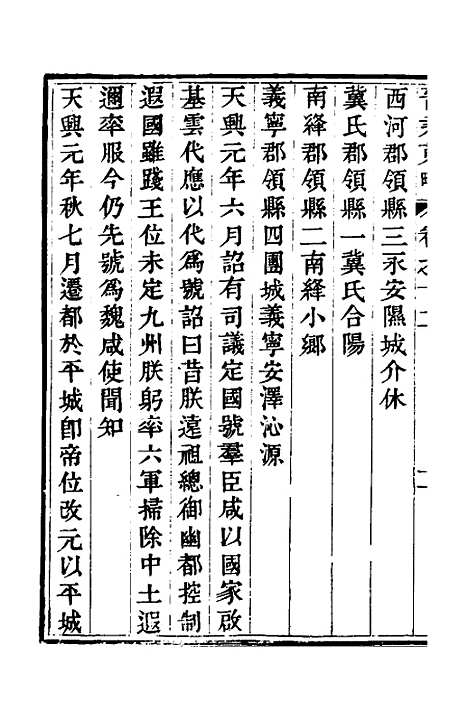 西河郡領縣三永安隰城介休
冀氏郡領縣一冀氏合陽
南絳郡領縣二南絳小鄉
義寧郡領縣四團城義寧安澤沁源
天興元年六月詔有司議定國號羣臣咸以國家啟
基雲代應以代爲號詔曰昔朕遠祖總御幽都控制
遐國雖踐王位未定九州朕躬率六軍掃除中土遐
邇率服今仍先號爲魏咸使聞知
天興元年秋七月遷都於平城卽帝位改元以平城